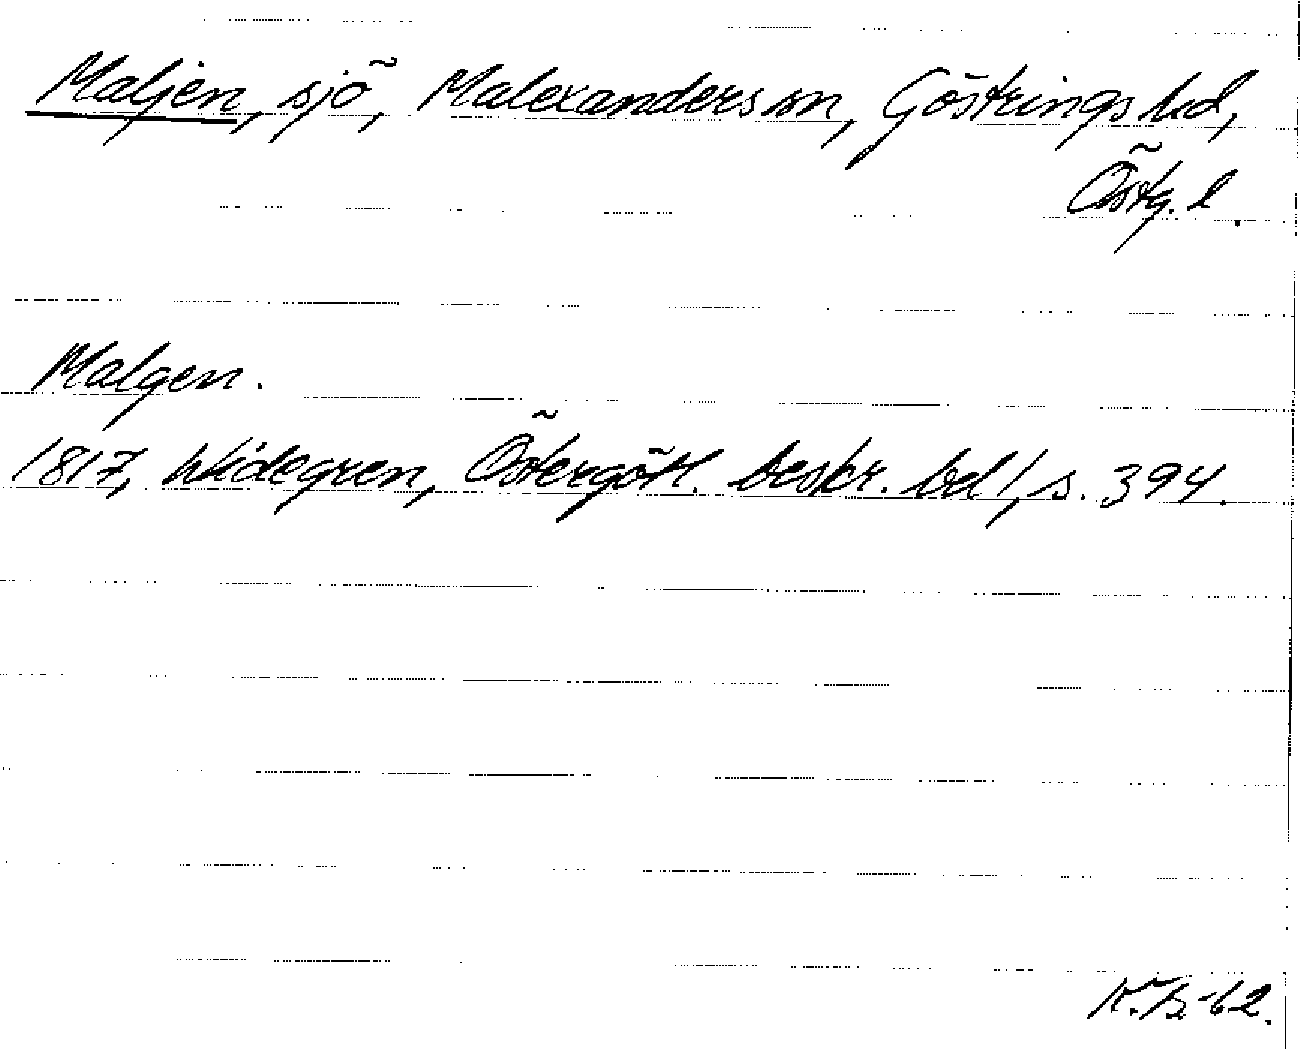 Maljen, sjö, Malexanders sn, Göstrings hd,
Östg. l.
Malgen.
1817, Widegren, Östergötl. beskr. bd 1, s. 394.
-62.